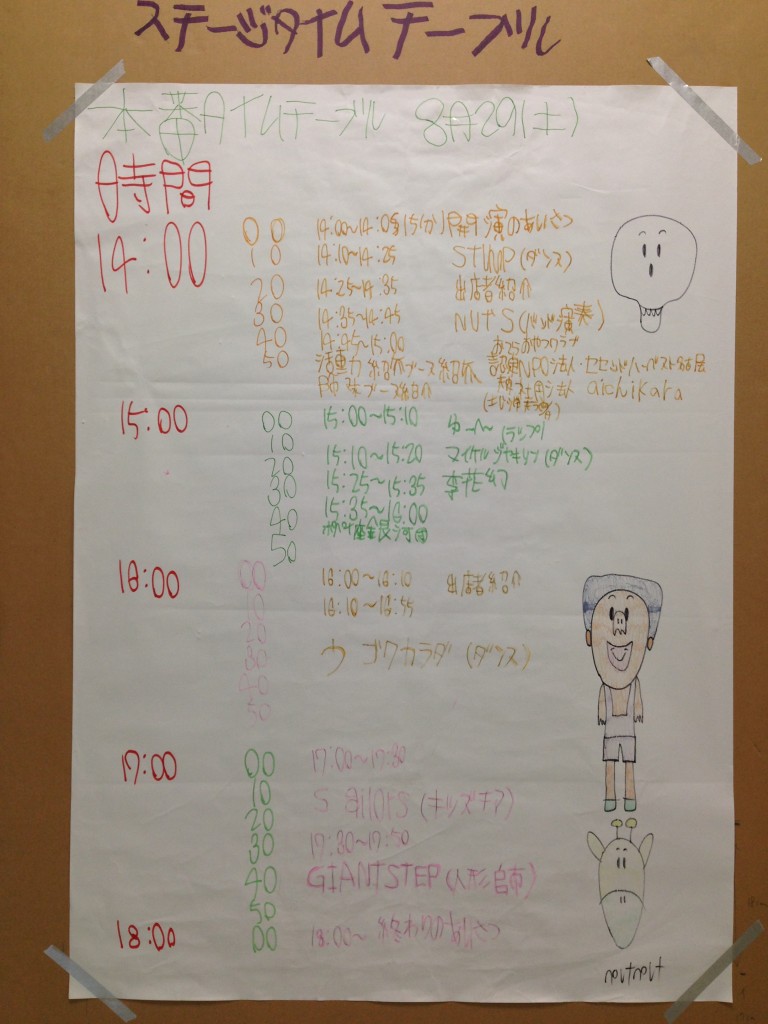 ステージタイムテーブル
本番タイムテーブル 8月29(土)
時間
14:00
00 14:00〜14:05(5分)開演のあいさつ
10 14:10〜14:25 STUMP(ダンス)
20 14:25〜14:35 出店者紹介
30 14:35〜14:45 NUTS(バンド演奏)
40 14:45〜15:00
50 活動 紹介ブース紹介 NPO法人・セカンドハーベスト名古屋
ブース紹介 aichikara
15:00
00 15:00〜15:10 (ラップ)
10
20 15:10〜15:20 マイケルジャクソン(ダンス)
30 15:25〜15:35 李花幻
40 15:35〜16:00
50
16:00
00 16:00〜16:10 出店者紹介
16:10〜16:55
ウゴクカラダ(ダンス)
50
17:00
00 17:00〜17:30
10 Sailors(キッズチア)
20
30 17:30〜17:50
40 GIANTSTEP(人形自車)
50
18:00 00 18:00〜 終わりのあいさつ